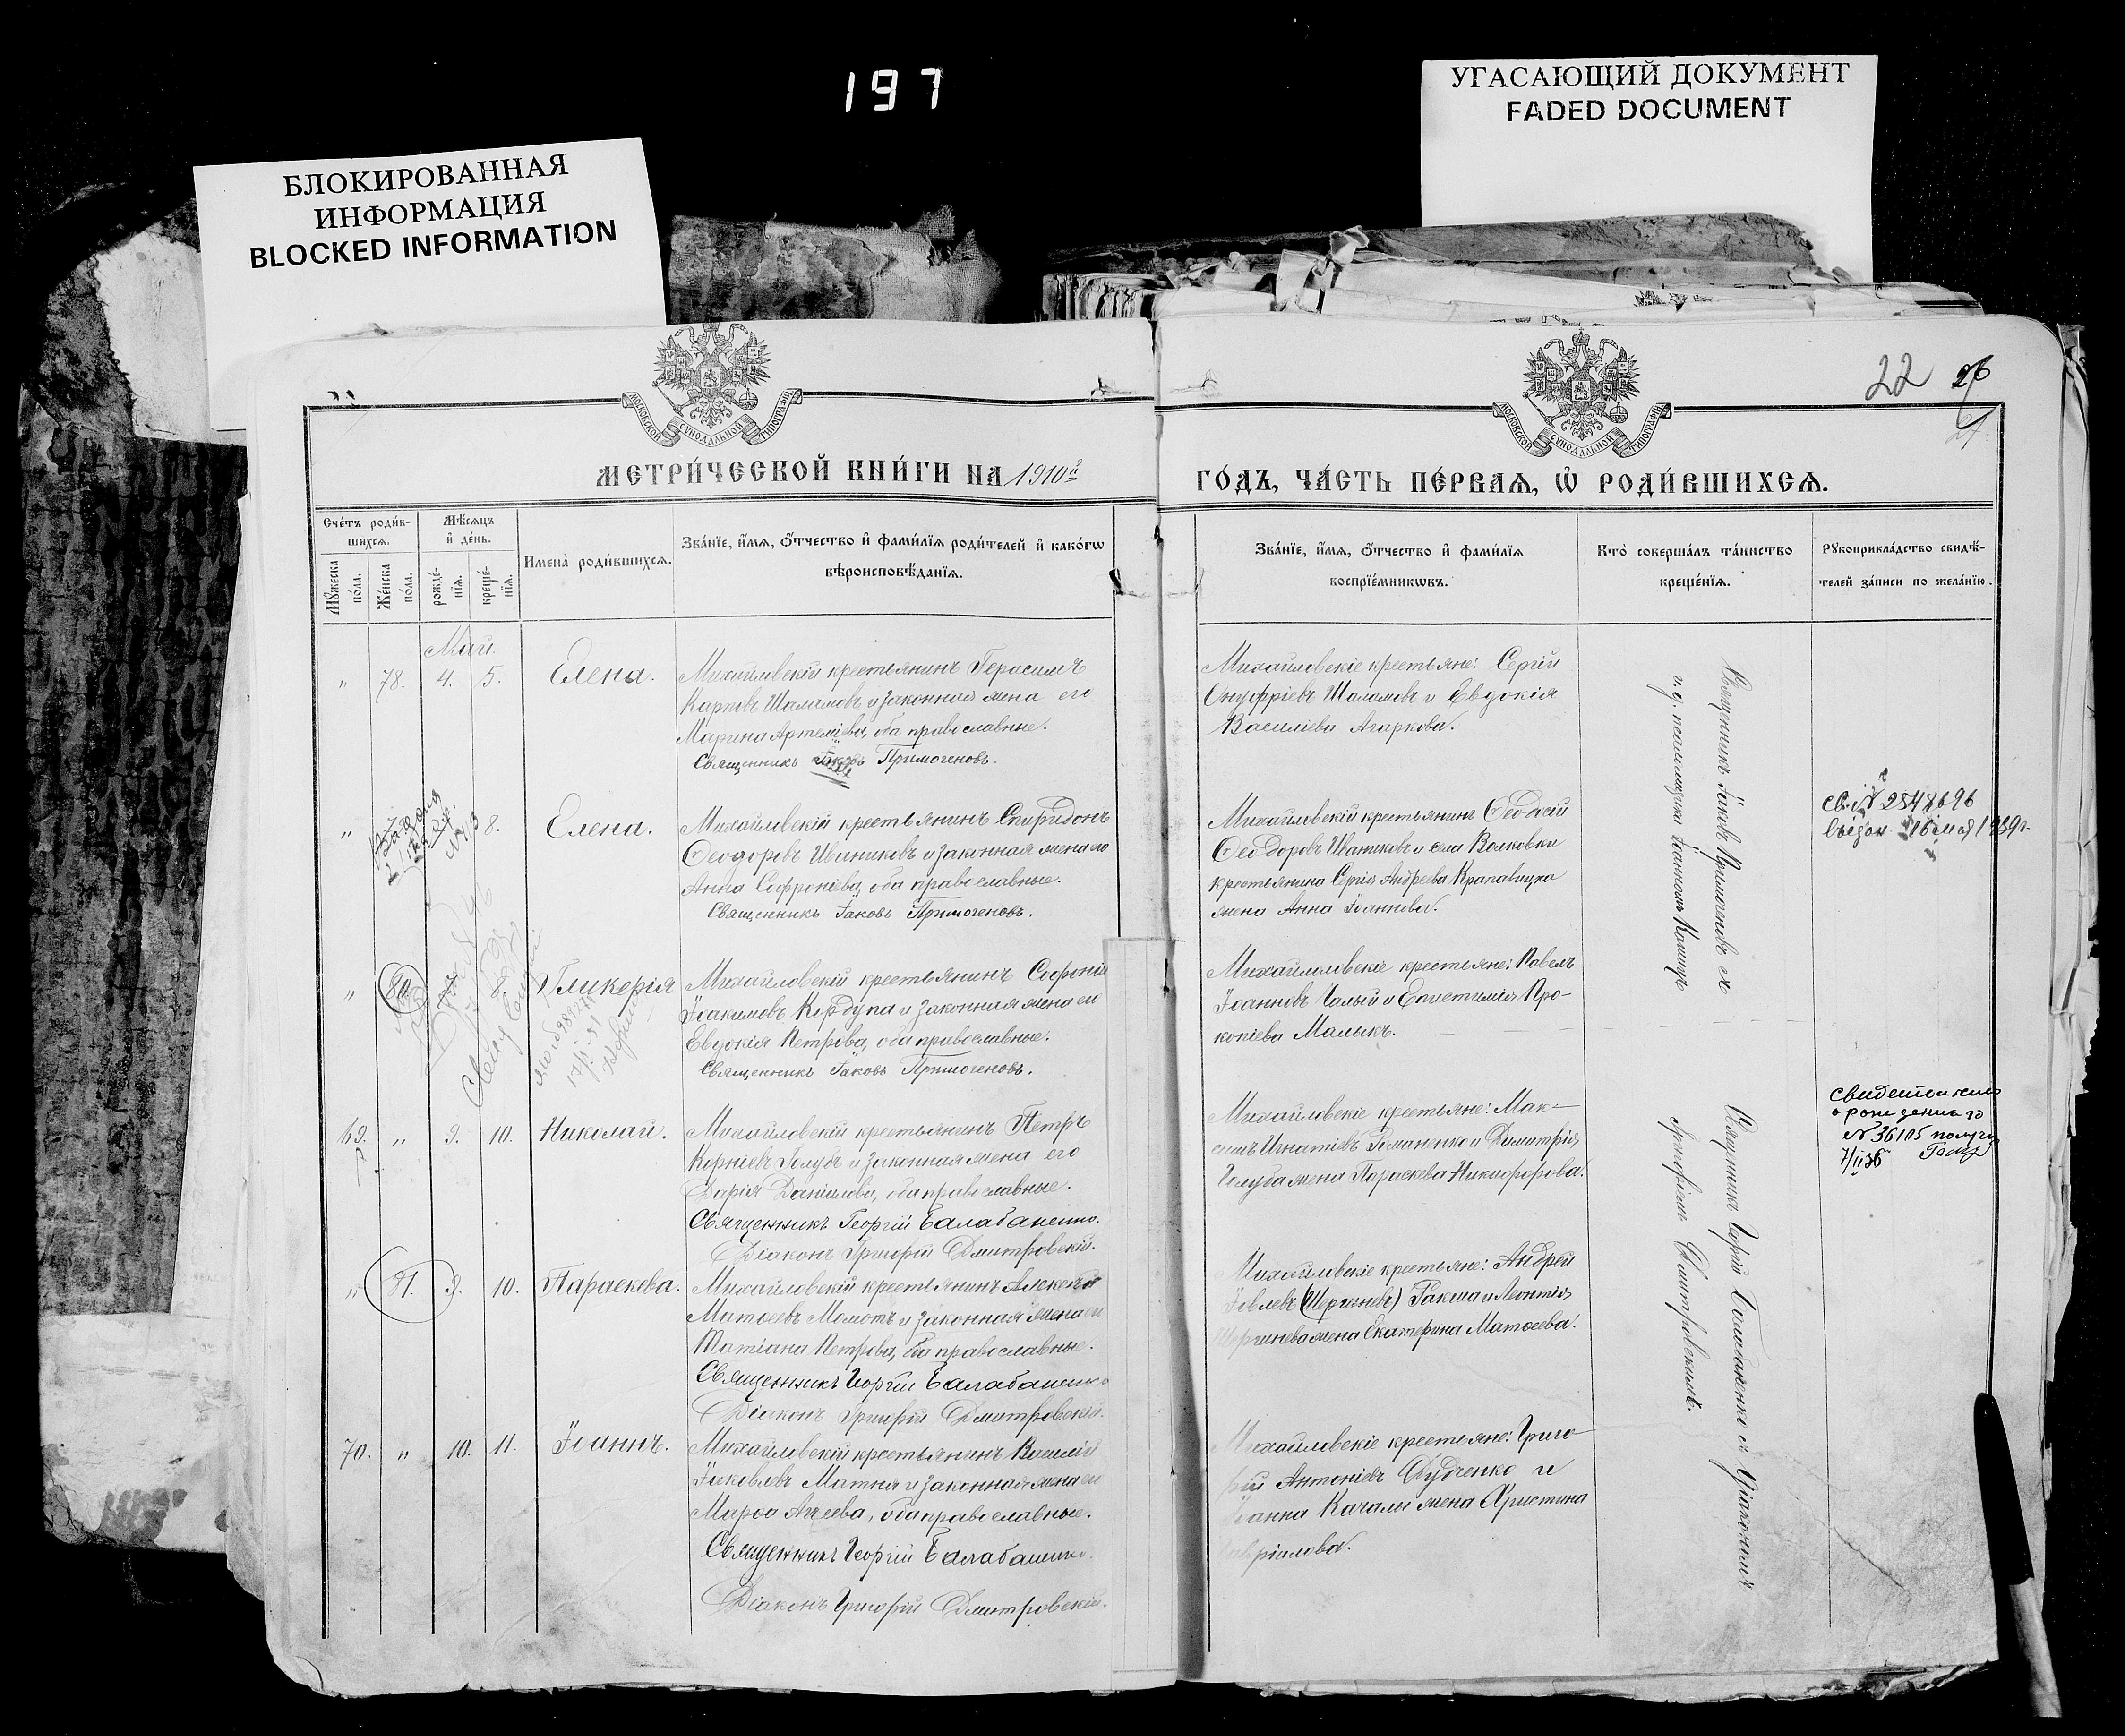 197
УГАСАЮЩИЙ ДОКУМЕНТ
FADED DOCUMENT
БЛОКИРОВАННАЯ
ИНФОРМАЦИЯ
BLOCKED INFORMATION
22 26
МОСКОВСКОЙ СУНОДАЛЬНОЙ ТИПОГРАФІИ
МОСКОВСКОЙ СУНОДАЛЬНОЙ ТИПОГРАФІИ
МЕТРИ́ЧЕСКОЙ КНИ́ГИ НА 1910й
ГО́ДЪ, ЧА́СТЬ ПЕ́РВАѦ, Ѡ҆ РОДИ́ВШИХСѦ.
Счетъ роди́в-
шихсѧ.
Мꙋжеска
по́ла.
Же́нска
по́ла.
Мѣ́сѧцъ
и҆ де́нь.
рожде́-
нїѧ.
креще́-
нїѧ.
И҆мена̀ роди́вшихсѧ.
Зва́нїе, и҆́мѧ, ѻ҆́тчество и҆ фами́лїѧ роди́телей и҆ како́гѡ
вѣроисповѣ́данїѧ.
Зва́нїе, и҆́мѧ, ѻ҆́тчество и҆ фами́лїѧ
воспрїе́мникѡвъ.
Кто̀ соверша́лъ та́инство
креще́нїѧ.
Рꙋкоприкла́дство свидѣ́-
телей за́писи по жела́нїю.
Май.
" 78. 4. 5. Елена.
Михайловскій крестьянинъ Герасимъ
Карповъ Шаламовъ и законная жена его
Марина Артеміева, оба православные.
Священникъ Іаковъ Примогеновъ.
Михайловскіе крестьяне: Сергій
Онуфріевъ Шаламовъ и Евдокія
Василіева Агаркова.
Священникъ Іаковъ Примогеновъ съ
и. д. псаломщика Іоанномъ
" 8. Елена.
Михайловскій крестьянинъ Спиридонъ
Ѳеодоровъ Иваниковъ и законная жена его
Анна Софроніева, оба православные.
Священникъ Іаковъ Примогеновъ.
Михайловскій крестьянинъ Ѳеодосій
Ѳеодоровъ Иваниковъ и села Волковки
крестьянина Сергія Андреева Крапавицка
жена Анна Іоаннова.
св. № 2548696
16 мая 1939г.
" Гликерія
Михайловскій крестьянинъ Софоній
Іоакимовъ Кордупа и законная жена его
Евдокія Петрова, оба православные.
Священникъ Іаковъ Примогеновъ.
Михайловскіе крестьяне: Павелъ
Іоанновъ Чалый и Епистимія Про-
копіева Малыкъ.
69. " 9. 10. Николай.
Михайловскій крестьянинъ Петръ
Корніевъ Голубъ и законная жена его
Дарія Даніилова, оба православные.
Священникъ Георгій Балабаненко.
Діаконъ Григорій Дмитровскій.
Михайловскіе крестьяне: Мак-
симъ Игнатіевъ Романенко и Димитрія
Голуба жена Параскева Никифорова.
Священникъ Георгій Балабаненко съ діакономъ
Григоріемъ Дмитровскимъ.
свидетельство
о рождении за
№ 36105
" 81. 9. 10. Параскева.
Михайловскій крестьянинъ Алексѣй
Матѳеевъ Момотъ и законная жена его
Татіана Петрова, оба православные.
Священникъ Георгій Балабаненко
Діаконъ Григорій Дмитровскій.
Михайловскіе крестьяне: Андрей
Іовлевъ (Шергеневъ) Гакша и Леонтія
жена Екатерина Матѳеева.
70. " 10. 11. Іоаннъ.
Михайловскій крестьянинъ Василій
Іаковлевъ Матня и законная жена его
Марѳа Аггеева, оба православные.
Священникъ Георгій Балабаненко.
Діаконъ Григорій Дмитровскій.
Михайловскіе крестьяне: Григо-
рій Антоніевъ Дудченко и
Іоанна Качалы жена Христина
Гавріилова.